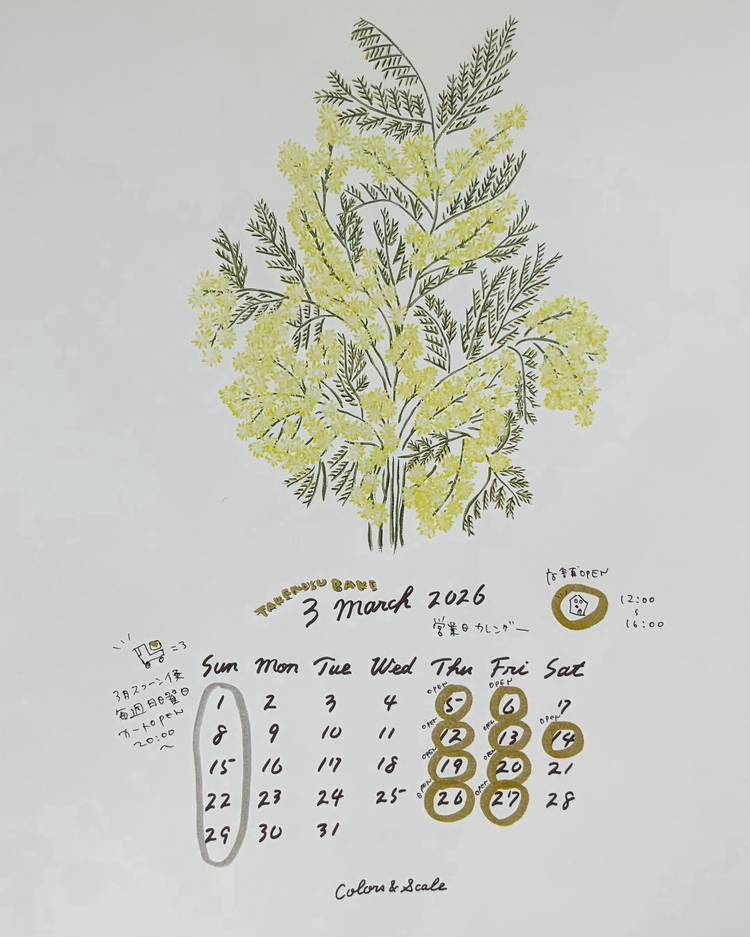 TAKENOSU BAKE
3 March 2026
営業日カレンダー
店舗OPEN
12:00
〜
16:00
=3
3月スコーン便
毎週日曜日
カートOPEN
20:00
〜
Sun Mon Tue Wed Thu Fri Sat
OPEN OPEN
1 2 3 4 5 6 7
OPEN OPEN OPEN
8 9 10 11 12 13 14
OPEN OPEN
15 16 17 18 19 20 21
OPEN OPEN
22 23 24 25 26 27 28
29 30 31
Colors & Scale